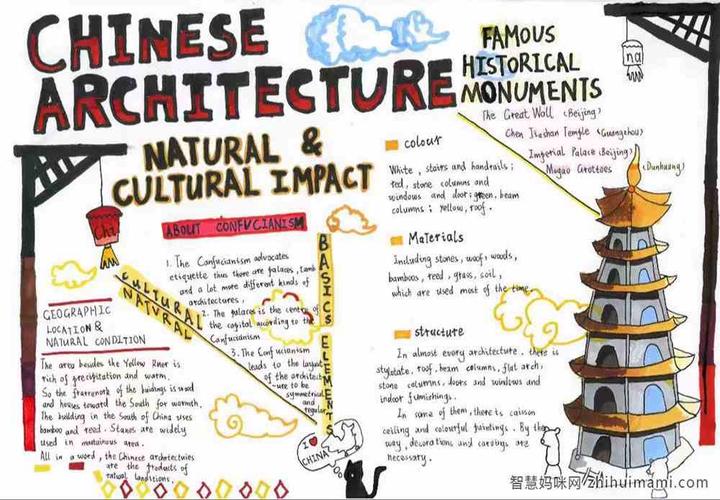 CHINESE
ARCHITECTURE
NATURAL &
CULTURAL IMPACT
FAMOUS
HISTORICAL
MONUMENTS
The Great Wall (Beijing)
Chen Temple (Guangzhou)
Imperial Palace (Beijing)
Mogao Grottoes (Dunhuang)
na
Chi
ABOUT CONFUCIANISM
1. The Confucianism advocates
etiquette thus there are palaces, tomb
and a lot more different kinds of
architectures.
2. The palaces is the centre of
the capital according to the
Confucianism
3. The Confucianism
leads to the largest
of the architect
-ure to be
symmetrical
and
regular
CULTURAL
NATURAL
BASICS ELEMENTS
GEOGRAPHIC
LOCATION &
NATURAL CONDITION
The area besides the Yellow River is
rich of precipitation and warm.
So the framework of the buidings is wood
and houses toward the South for warmth.
The building in the South of China uses
bamboo and reed. Stones are widely
used in area.
All in a word, the Chinese architectures
are the products of
natural
colour
White, stairs and handrails;
red, stone columns and
windows and door; green, beam
columns; yellow, roof.
Materials
Including stones, woof, woods,
bamboos, reed, grass, soil,
which are used most of the time.
structure
In almost every architecture, there is
roof, beam columns, flat arch,
stone columns, doors and windows and
indoor furnishings.
In some of them, there is caisson
ceiling and colourful paintings. By the
way, decorations and carvings are
necessary.
I
CHINA
智慧妈咪网 zhihuimami.com